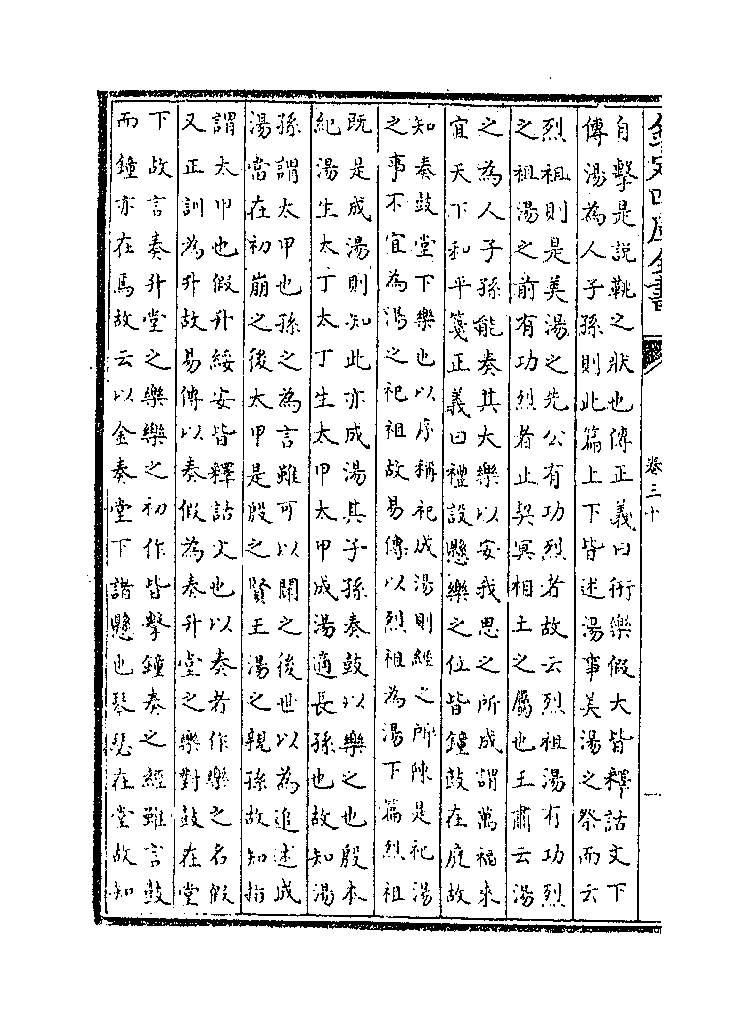 欽定四庫全書
卷三十
自擊是説鞉之狀也傳正義曰衎樂假大皆釋詁文下
傳湯為人子孫則此篇上下皆述湯事美湯之祭而云
烈祖則是美湯之先公有功烈者故云烈祖湯有功烈
之祖湯之前有功烈者止契冥相土之屬也王肅云湯
之為人子孫能奏其大樂以安我思之所成謂萬福來
宜天下和平箋正義曰禮設懸樂之位皆鐘鼓在庭故
知奏鼓堂下樂也以序稱祀成湯則經之所陳是祀湯
之事不宜為湯之祀祖故易傳以烈祖為湯下篇烈祖
既是成湯則知此亦成湯其子孫奏鼓以樂之也殷本
紀湯生太丁太丁生太甲太甲成湯適長孫也故知湯
孫謂太甲也孫之為言雖可以關之後世以為追述成
湯當在初崩之後太甲是殷之賢王湯之親孫故知指
謂太甲也假升綏安皆釋詁文也以奏者作樂之名假
又正訓為升故易傳以奏假為奏升堂之樂對鼓在堂
下故言奏升堂之樂樂之初作皆擊鐘奏之經雖言鼓
而鐘亦在焉故云以金奏堂下諸懸也琴瑟在堂故知